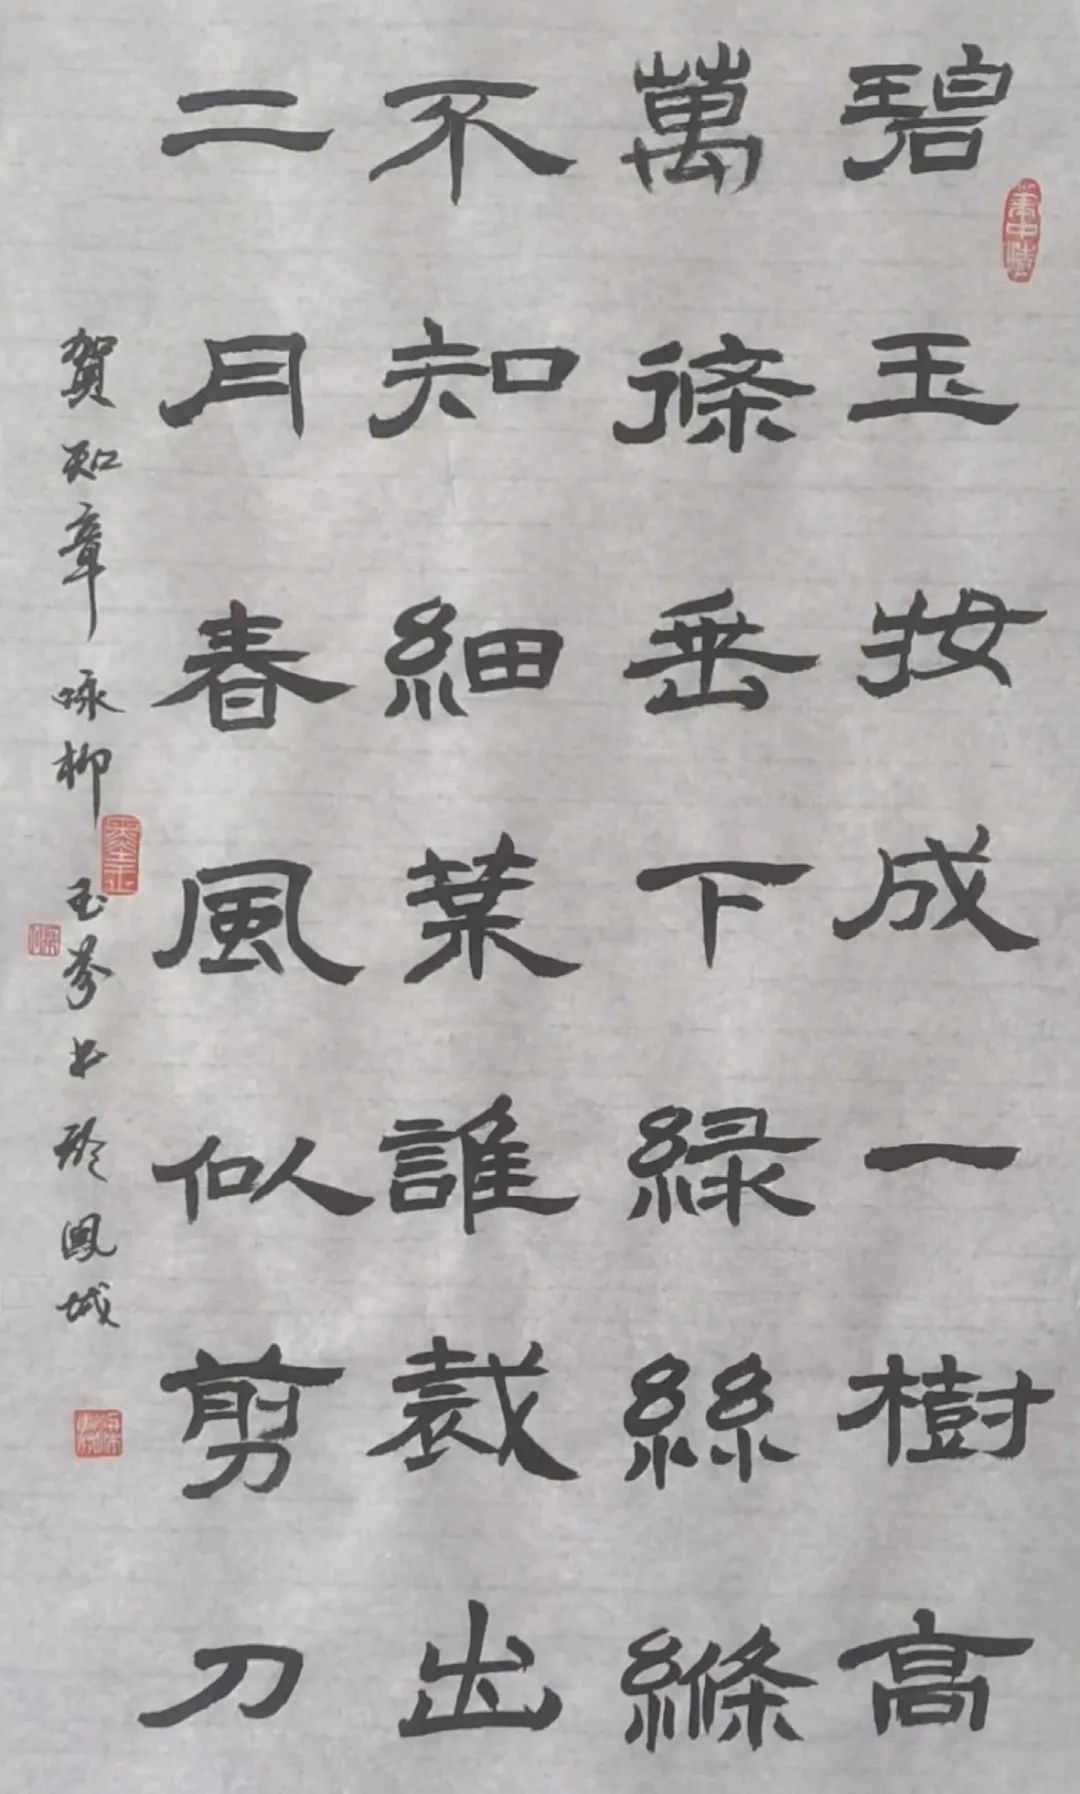 碧玉妝成一樹高
萬條垂下緑絲縧
不知細葉誰裁出
二月春風似剪刀
賀知章咏柳 玉书於鳳城